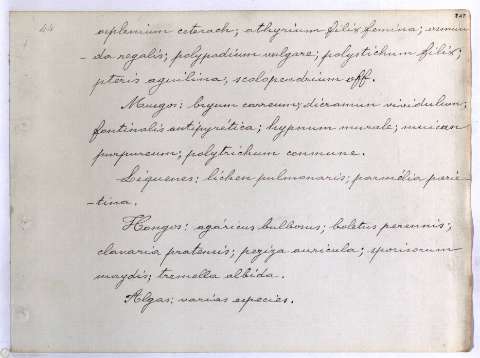 44
asplenium ceterach; athyrium filix femina; osmun
-da regalis; polypodium vulgare; polystichum filix;
pteris aquilina; scolopendrium off.
Musgos: bryum carreum; dicramun viridulum;
fontinalis antipyrética; hypnum murale;
purpureum; polytrichum commune.
Líquenes: lichen pulmonaris; parmélia parie
-tina.
Hongos: agáricus bulbosus; boletus perennis;
clavaria pratensis; peziza aurícula; sporisorum
maydis; tremella albida.
Algas: varias especies.